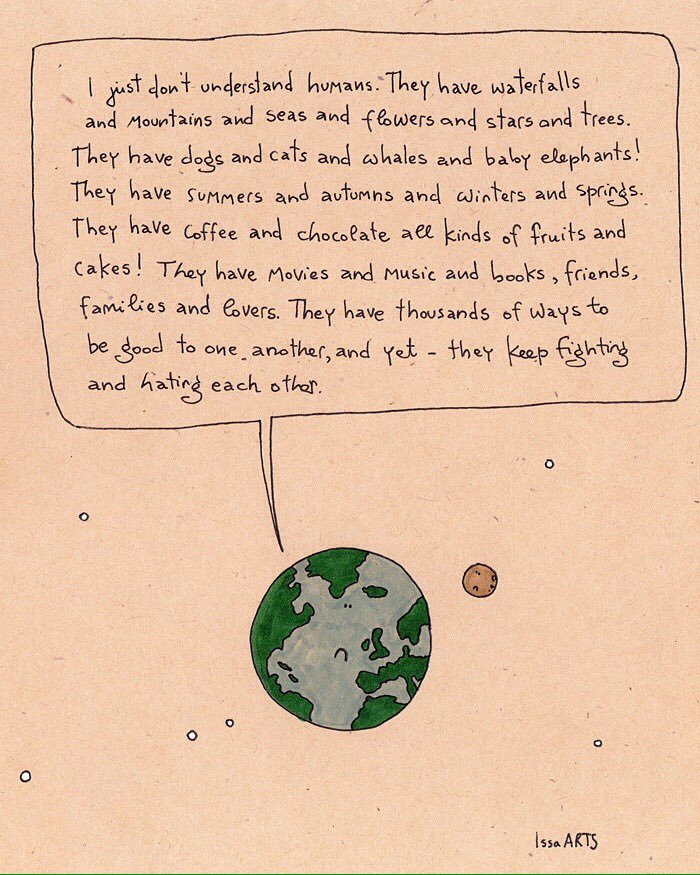 I just don't understand humans. They have waterfalls
and mountains and seas and flowers and stars and trees.
They have dogs and cats and whales and baby elephants!
They have summers and autumns and winters and springs.
They have coffee and chocolate all kinds of fruits and
cakes! They have movies and music and books, friends,
families and lovers. They have thousands of ways to
be good to one another, and yet - they keep fighting
and hating each other.
Issa ARTS